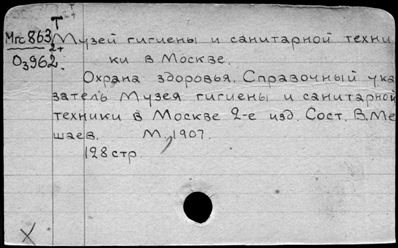 Т
Мгс863
2+
О3962.
Музей гигиены и санитарной техни
ки в Москве.
Охрана здоровья. Справочный ука
затель Музея гигиены и санитарной
техники в Москве 2-е изд. Сост. В.Ме
шаев. М., 1907.
128 стр.
X